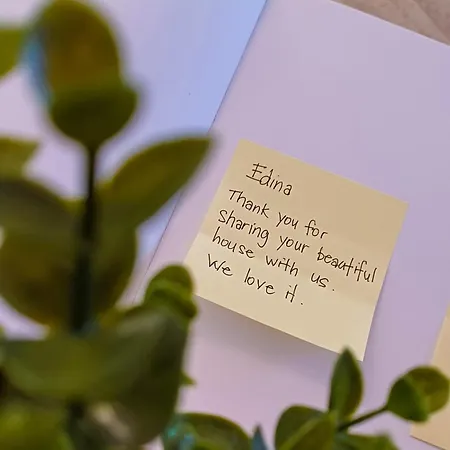 Edina
Thank you for
Sharing your beautiful
house with us.
We love it.